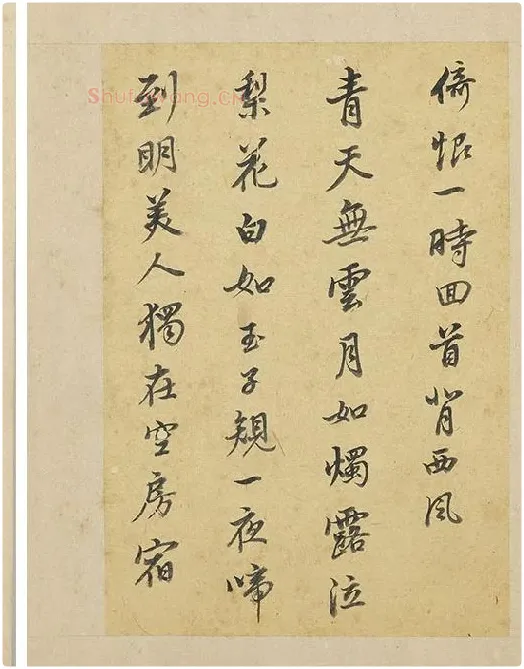 倚恨一時囬首背西風
青天無雲月如燭露泣
梨花白如玉子規一夜啼
到明美人獨在空房宿